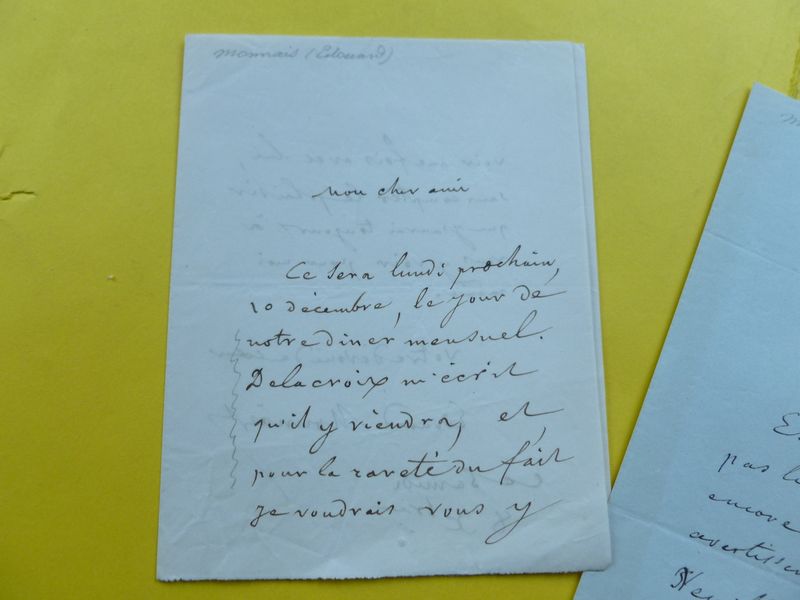 Monnais (Edouard)
Mon cher ami
Ce sera lundi prochain,
10 décembre, le jour de
notre diner mensuel.
Delacroix m'écrit
qu'il y viendra, et,
pour la rareté du fait
je voudrais vous y
pas
encore